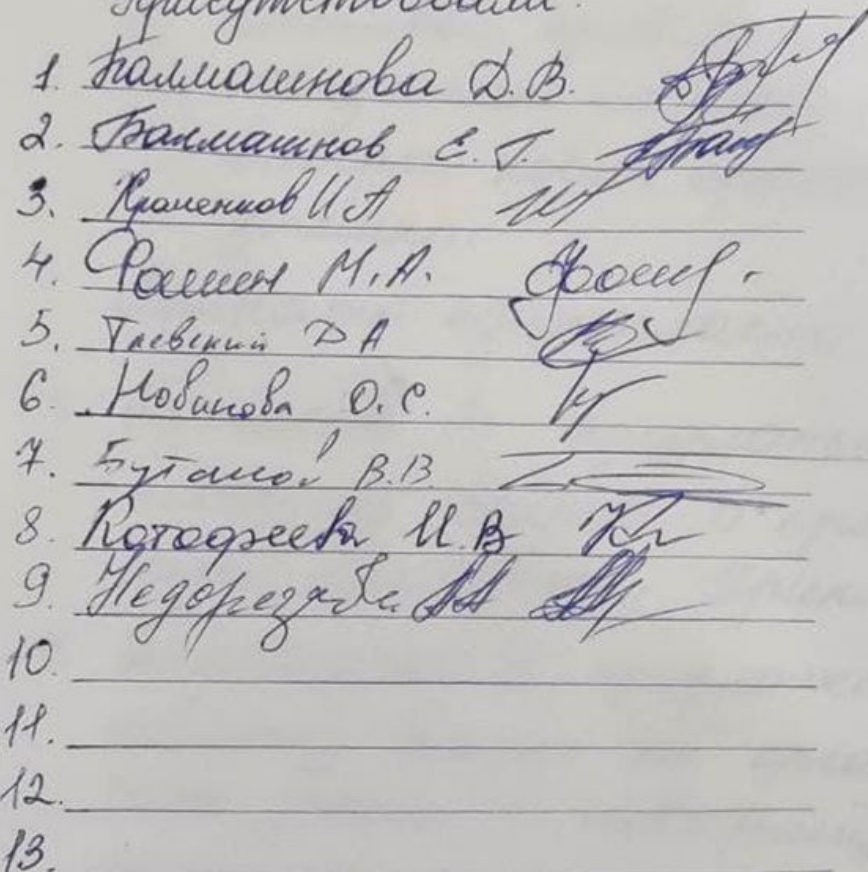 Присутствовали:
1. Балмашнова Д.В.
2. Балмашнов Е.Г.
3. И А
4. Фошин М.А.
5. Д А
6. Новикова О.С.
7. Бутаков В.В.
8. Котофеева И.В
9. Недорезова А А
10.
11.
12.
13.